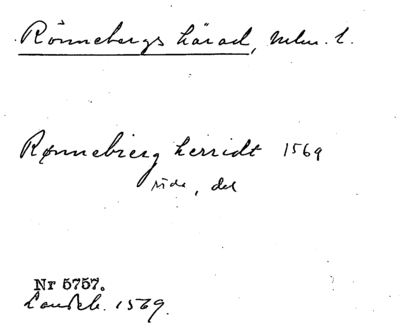 Rönnebergs härad, Mlm. l.
Rønnebierg herridt 1569
side, del
Nr 5757.
Landeb. 1569.